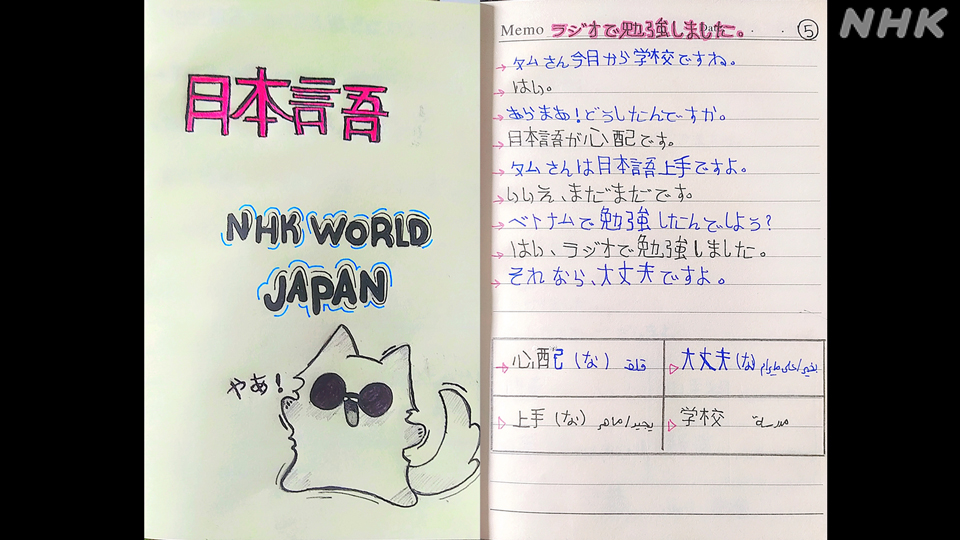 日本語
NHK WORLD
JAPAN
やあ!
NHK
Memo ラジオで勉強しました。 Date ⑤
タムさん今日から学校ですね。
はい。
あらまあ!どうしたんですか。
日本語が心配です。
タムさんは日本語上手ですよ。
いいえ、まだまだです。
ベトナムで勉強したんでしよう?
はい、ラジオで勉強しました。
それなら、大丈夫ですよ。
心配(な) قلق
大丈夫(な) بخير/على مايرام
上手(な) يجيد/ماهر
学校 مدرسة